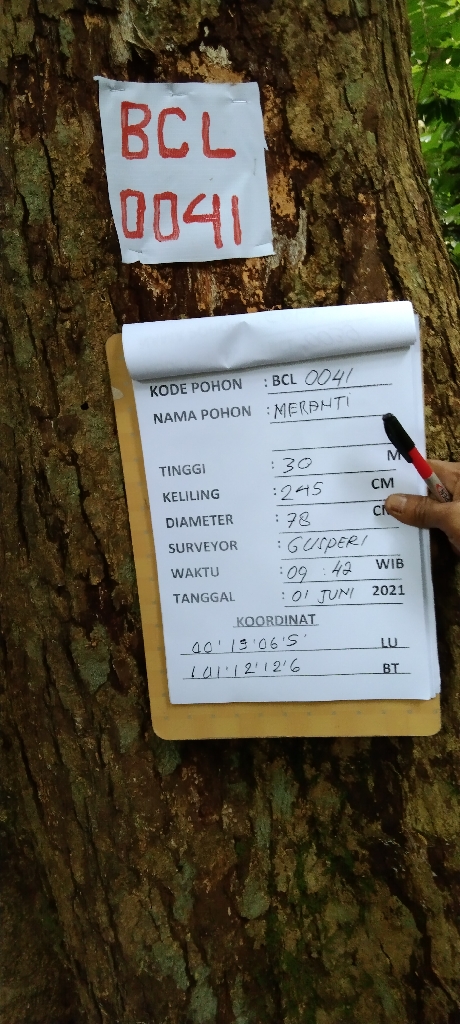 BCL
0041
KODE POHON : BCL 0041
NAMA POHON : MERANTI
TINGGI : 30 M
KELILING : 245 CM
DIAMETER : 78 CM
SURVEYOR : GUSPERI
WAKTU : 09 : 42 WIB
TANGGAL : 01 JUNI 2021
KOORDINAT
00'15'06'5' LU
101'12'12'6 BT